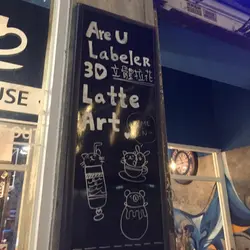 Are U
LabeleR
3D 立體拉花
Latte
Art
USE